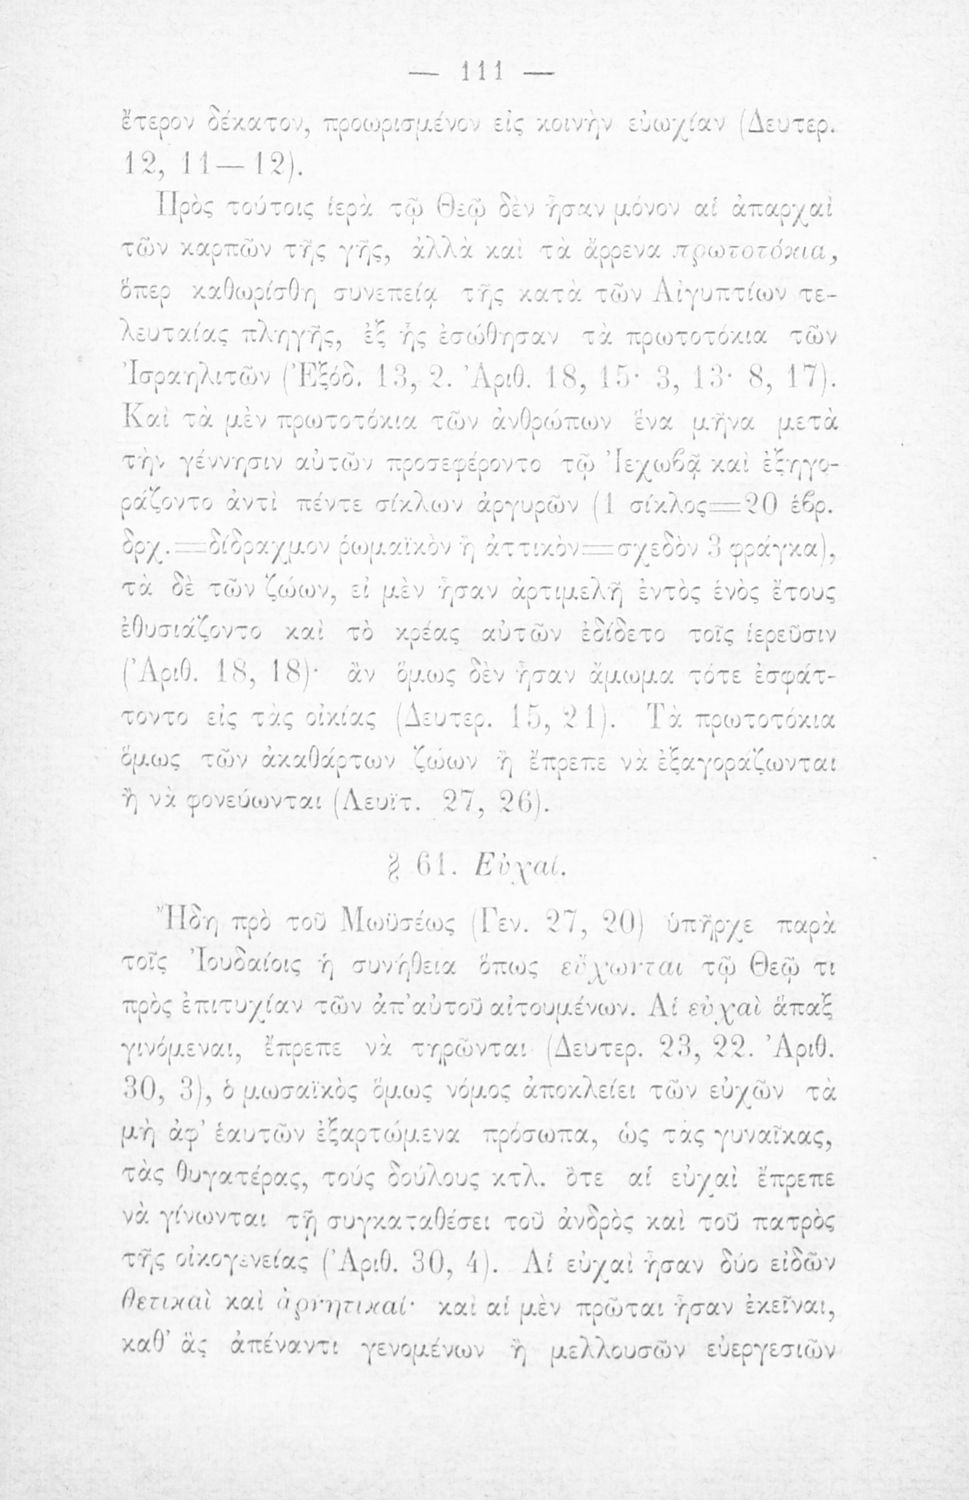 — 111 —
ἕτερον δέκατον, προωρισμένον εἰς κοινὴν εὐωχίαν (Δευτερ.
12, 11—12).
Πρὸς τούτοις ἱερὰ τῷ Θεῷ δὲν ἦσαν μόνον αἱ ἀπαρχαὶ
τῶν καρπῶν τῆς γῆς, ἀλλὰ καὶ τὰ ἄρρενα πρωτοτόκια,
ὅπερ καθωρίσθη συνεπείᾳ τῆς κατὰ τῶν Αἰγυπτίων τε-
λευταίας πληγῆς, ἐξ ἧς ἐσώθησαν τὰ πρωτοτόκια τῶν
Ἰσραηλιτῶν (Ἐξόδ. 13, 2. Ἀριθ. 18, 15· 3, 13· 8, 17).
Καὶ τὰ μὲν πρωτοτόκια τῶν ἀνθρώπων ἕνα μῆνα μετὰ
τὴν γέννησιν αὐτῶν προσεφέροντο τῷ Ἰεχωβᾷ καὶ ἐξηγο-
ράζοντο ἀντὶ πέντε σίκλων ἀργυρῶν (1 σίκλος=20 ἑβρ.
δρχ.=δίδραχμον ῥωμαϊκὸν ἢ ἀττικὸν=σχεδὸν 3 φράγκα),
τὰ δὲ τῶν ζώων, εἰ μὲν ἦσαν ἀρτιμελῆ ἐντὸς ἑνὸς ἔτους
ἐθυσιάζοντο καὶ τὸ κρέας αὐτῶν ἐδίδετο τοῖς ἱερεῦσιν
(Ἀριθ. 18, 18)· ἂν ὅμως δὲν ἦσαν ἄμωμα τότε ἐσφάτ-
τοντο εἰς τὰς οἰκίας (Δευτερ. 15, 21). Τὰ πρωτοτόκια
ὅμως τῶν ἀκαθάρτων ζώων ἢ ἔπρεπε νὰ ἐξαγοράζωνται
ἢ νὰ φονεύωνται (Λευϊτ. 27, 26).
§ 61. Εὐχαί.
Ἤδη πρὸ τοῦ Μωϋσέως (Γεν. 27, 20) ὑπῆρχε παρὰ
τοῖς Ἰουδαίοις ἡ συνήθεια ὅπως εὔχωνται τῷ Θεῷ τι
πρὸς ἐπιτυχίαν τῶν ἀπ᾽αὐτοῦ αἰτουμένων. Αἱ εὐχαὶ ἅπαξ
γινόμεναι, ἔπρεπε νὰ τηρῶνται (Δευτερ. 23, 22. Ἀριθ.
30, 3), ὁ μωσαϊκὸς ὅμως νόμος ἀποκλείει τῶν εὐχῶν τὰ
μὴ ἀφ᾽ ἑαυτῶν ἐξαρτώμενα πρόσωπα, ὡς τὰς γυναῖκας,
τὰς θυγατέρας, τούς δούλους κτλ. ὅτε αἱ εὐχαὶ ἔπρεπε
νὰ γίνωνται τῇ συγκαταθέσει τοῦ ἀνδρὸς καὶ τοῦ πατρὸς
τῆς οἰκογενείας (Ἀριθ. 30, 4). Αἱ εὐχαὶ ἦσαν δύο εἰδῶν
θετικαὶ καὶ ἀρνητικαί· καὶ αἱ μὲν πρῶται ἦσαν ἐκεῖναι,
καθ᾽ ἃς ἀπέναντι γενομένων ἢ μελλουσῶν εὐεργεσιῶν